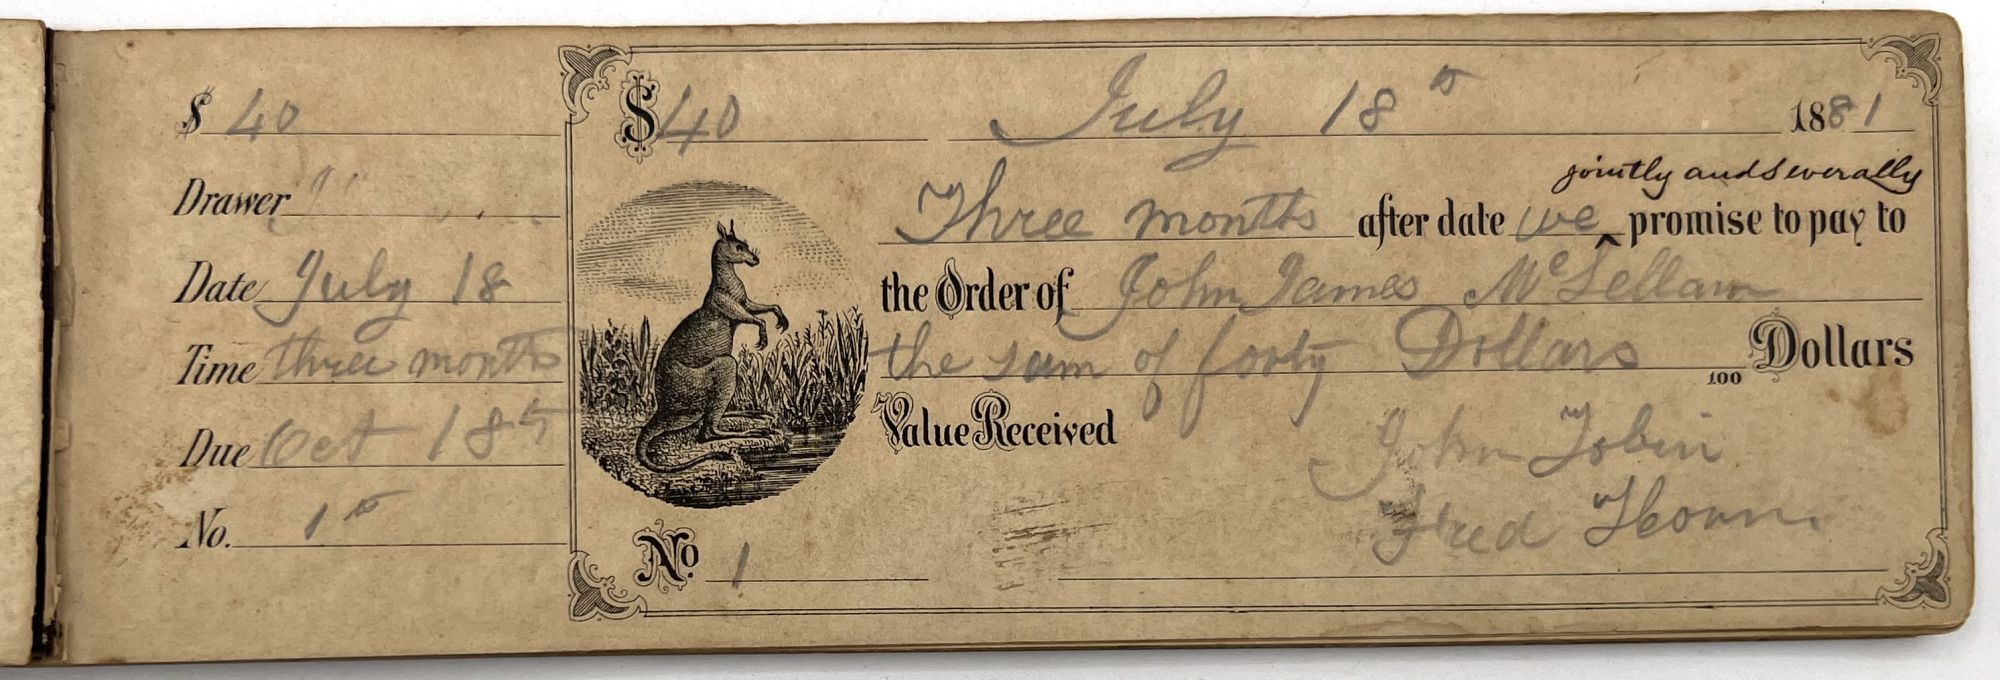 $ 40
Drawer
Date July 18
Time three months
Due Oct 18
No. 1
$ 40 July 18 1881
jointly and severally
Three months after date we ^ promise to pay to
the Order of John James McLellam
the sum of forty Dollars 100 Dollars
Value Received
John Tobin
Fred
No 1